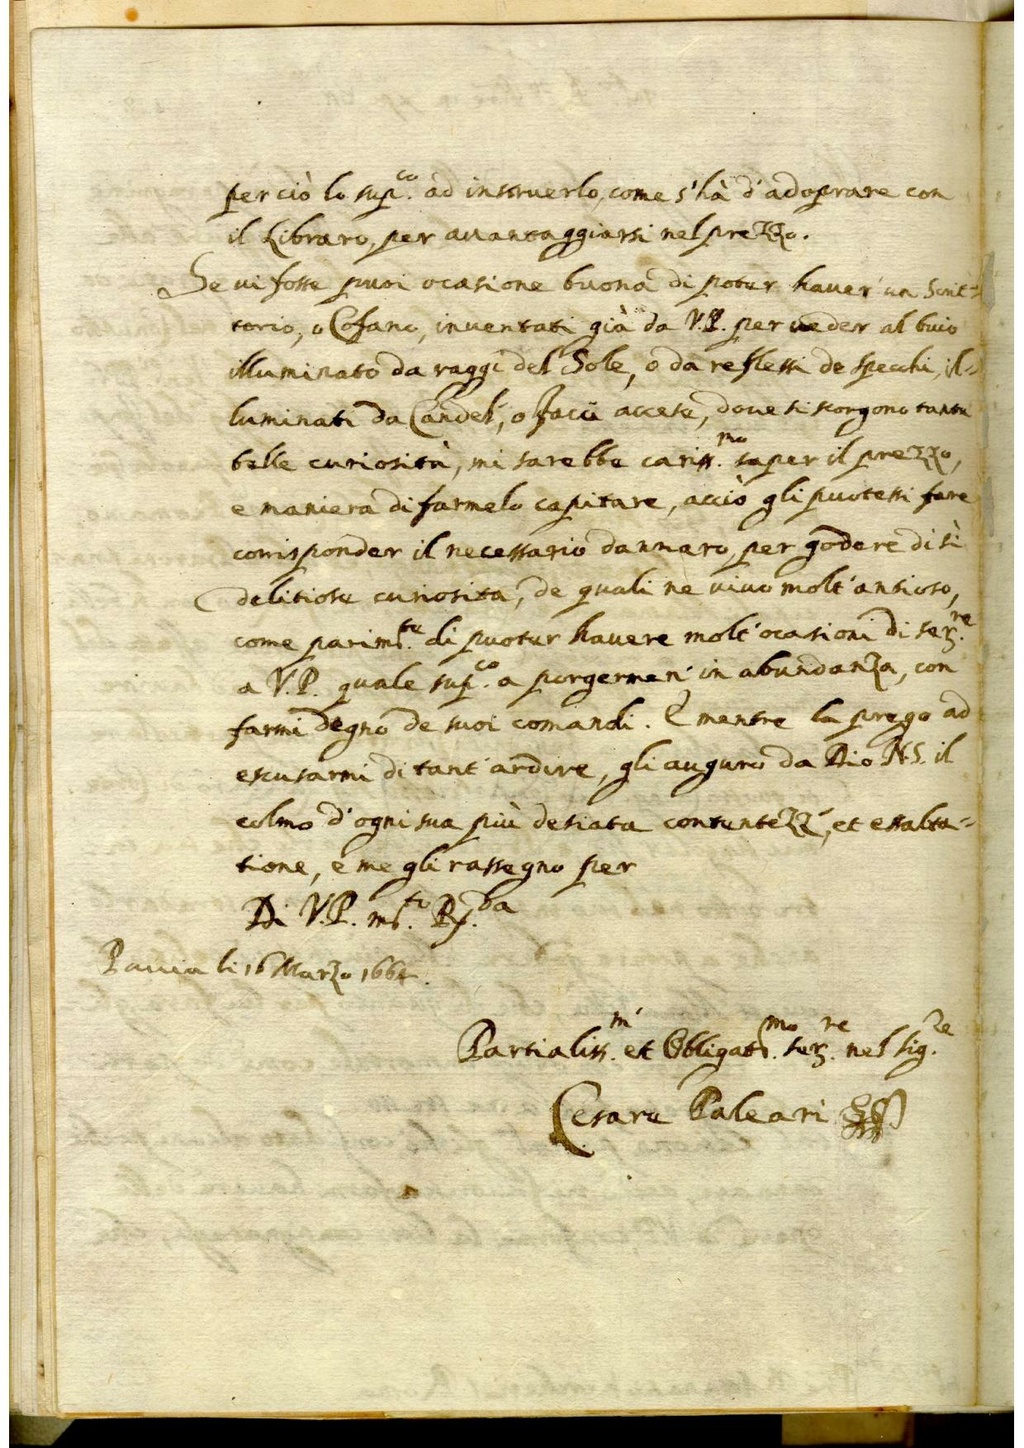 perciò lo sup.co ad instruerlo, come s'hà d'adoprare con
il Libraro, per avantaggiarsi nel prezzo.
Se vi fosse puoi ocasione buona di poter haver un Scrit=
torio, o Cofano, inventati già da V.P. per veder al buio
illuminato da raggi del Sole, o da reflessi de specchi, il=
luminati da Candel', o faci accese, dove si scorgono tante
belle curiosità, mi sarebbe cariss.mo saper il prezzo,
e maniera di farmelo capitare, acciò gli puotessi fare
corrisponder il necessario dannaro, per godere di sì
delitiose curiosità, de quali ne vivo molt'ansioso,
come parim.te di puoter havere molt'ocasioni di ser.re
a V.P. quale sup.co a porgermen' in abundanza, con
farmi degno de suoi comandi. E mentre la prego ad
escusarmi di tant'ardire, gli auguro da Dio N.S. il
colmo d'ogni sua più desiata contentezz', et essalta=
tione, e me gli rassegno per
Di V.P. m.to R.da
Pavia li 16 Marzo 1664.
Partialiss.m' et Obligat.mo ser.re nel Sig.re
Cesare Paleari